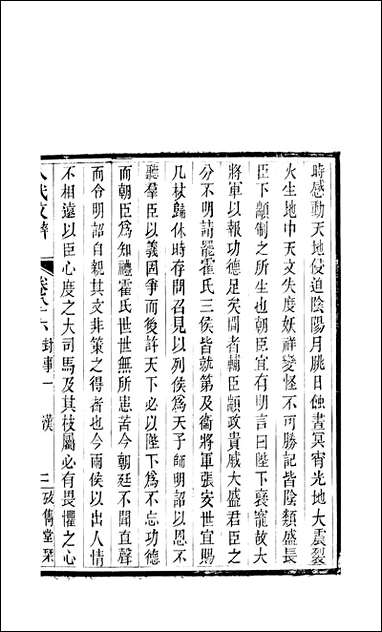 時感動天地侵迫陰陽月朓日蝕晝冥宵光地大震裂
火生地中天文失度妖祥變怪不可勝記皆陰類盛長
臣下顓制之所生也朝臣宜有明言曰陛下襃寵故大
將軍以報功德足矣間者輔臣顓政貴戚大盛君臣之
分不明請罷霍氏三侯皆就第及衞將軍張安世宜賜
几杖歸休時存問召見以列侯爲天子師明詔以恩不
聽羣臣以義固爭而後許天下必以陛下爲不忘功德
而朝臣爲知禮霍氏世世無所患苦今朝廷不聞直聲
而令明詔自親其文非策之得者也今兩侯以出人情
不相遠以臣心度之大司馬及其枝屬必有畏懼之心
八代文粹
卷八十六
封事一
漢
二
攷雋堂栞